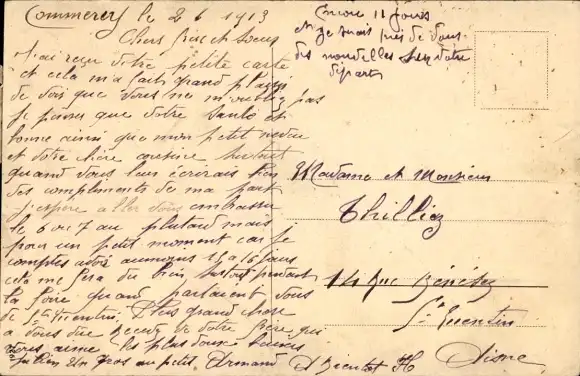 Commercy le 2 6 1913
Chers frère et Soeur
J'ai reçu votre petite carte
et cela m'a fait grand plaisir
de vois que vous ne m'oubliez pas
Je pense que votre santé est
bonne ainsi que mon petit neveu
et votre chère cousine
quand vous leur écrirais bien
des compliments de ma part
J'espère aller vous embrasser
le 6 ou 7 au plutard mais
pour un petit moment car je
comptes avoir aumoins 15 a 16 jours
cela me fera du bien surtout pendant
la foire quand parlaient vous
de St Quentin. Plus grand chose
a vous dire Recevez de votre frère qui
vous aime les plus doux baisers
un gros au petit, Armand
Encore 11 jours
et je suis près de vous
des nouvelles sur votre
départ
Madame et Monsieur
Thilliez
14 Rue Bénézet
St Quentin
Aisne
A Bientot